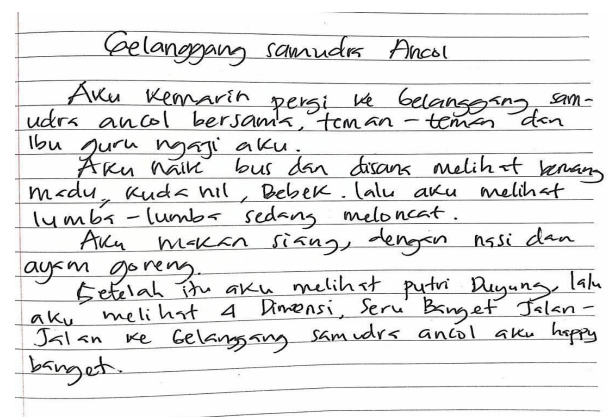 Gelanggang samudra Ancol
Aku kemarin pergi ke Gelanggang sam-
udra ancol bersama, teman-teman dan
Ibu guru ngaji aku.
Aku naik bus dan disana melihat beruang
madu, kuda nil, Bebek. lalu aku melihat
lumba-lumba sedang meloncat.
Aku makan siang, dengan nasi dan
ayam goreng.
Setelah itu aku melihat putri Duyung, lalu
aku melihat 4 Dimensi, Seru Banget Jalan-
Jalan ke Gelanggang samudra ancol aku happy
banget.